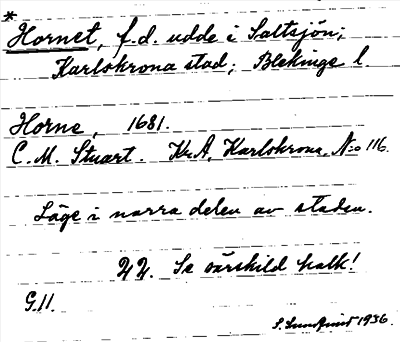 *
Hornet, f.d. udde i Saltsjön;
Karlskrona stad; Blekinge l.
Horne, 1681.
C. M. Stuart. Kr.A, Karlskrona, N:o 116.
Läge i norra delen av staden.
22. Se särskild kalk!
G.11.
S. Lundqvist 1936.